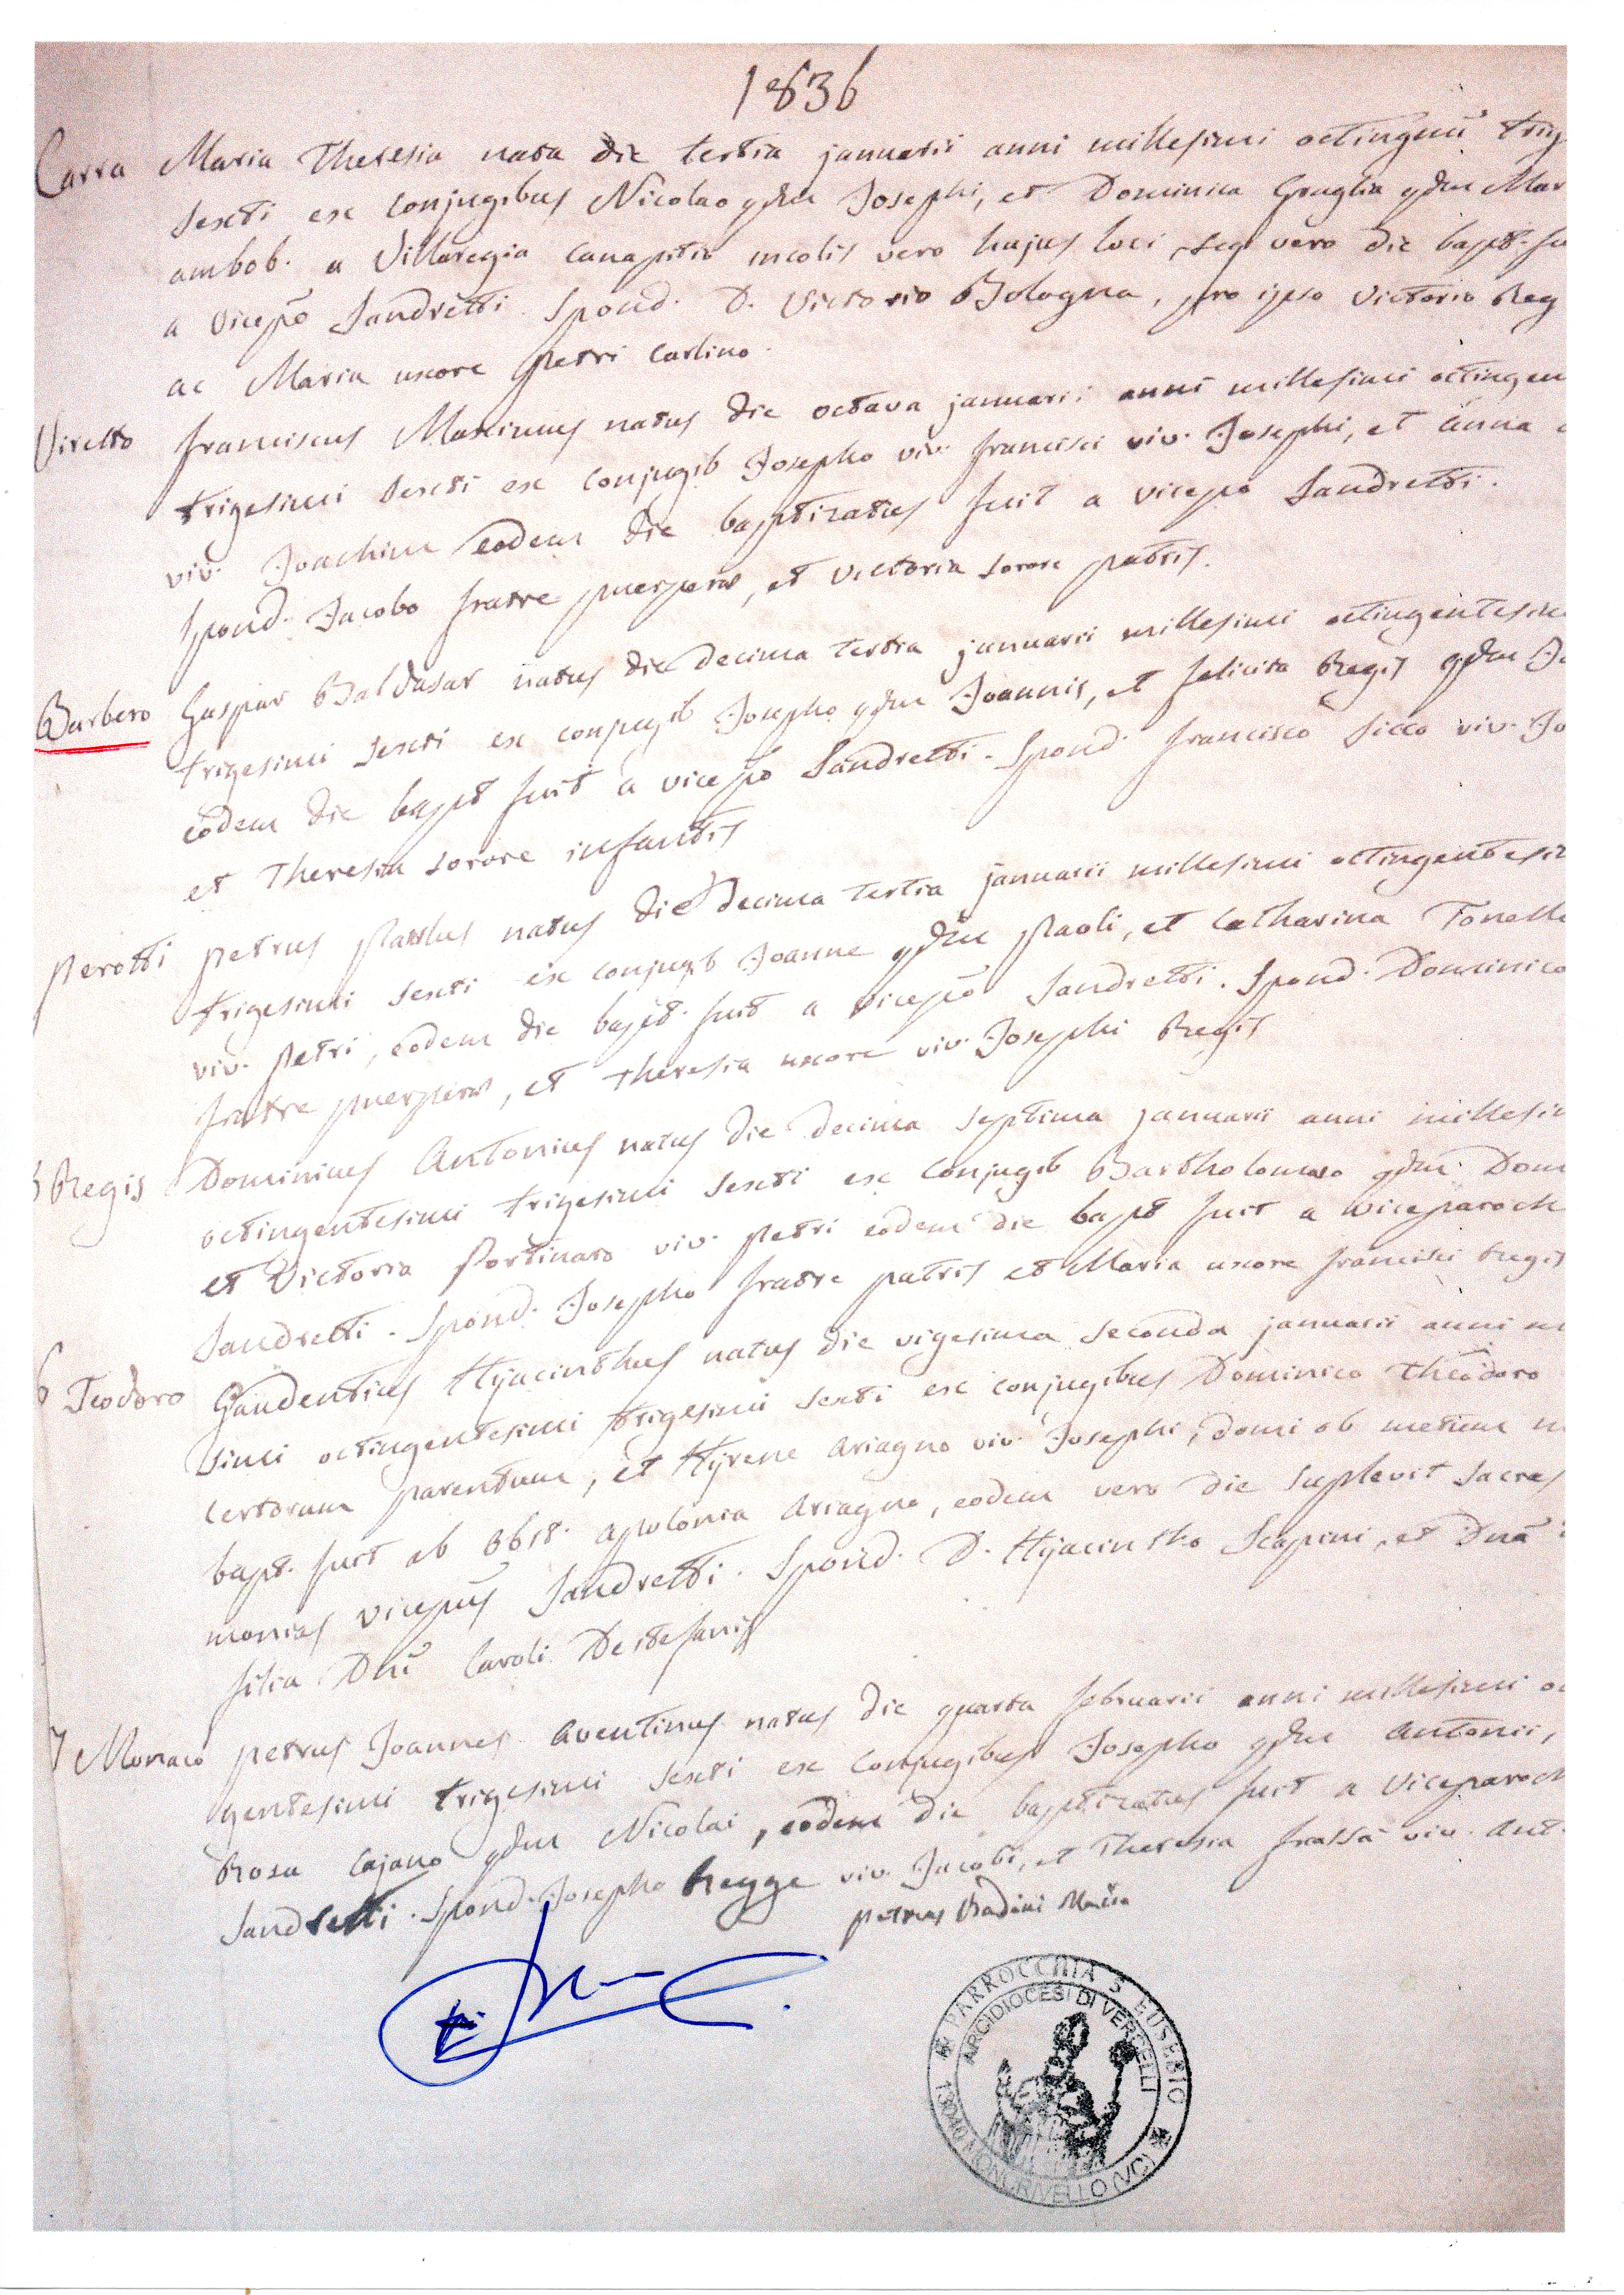 1836
Carra Maria Theresia nata die tertia januarii anni millesimi octingmi trig
sexti ex conjugibus Nicolao qdm Josephi, et Dominica Gruglia qdm Mar
ambob. a Villaregia Canapitii incolis vero hujus loci, seq vero die bapt. fu
a vicepo Sandretti. Spond. D. Victorio Bologna, pro ipso Victorio Reg
ac Maria uxore Petri Carlino.
Viretto Franciscus Maximus natus die octava januarii anni millesimi octingen
trigesimi sexti ex conjugib Josepho viv. Francisci viv. Josephi, et Anna
viv. Joachim eodem die baptizatus fuit a vicepo Sandretti.
Spond. Jacobo fratre puerperæ, et Victoria sorore patris.
Barbero Gaspar Baldasar natus die decima tertia januarii millesimi octingentesim
trigesimi sexti ex conjugib Josepho qdm Joannis, et Felicita Regis qdm Jo
eodem die bapt fuit a vicepo Sandretti. Spond. Francisco Sicco viv. Jo
et Theresia sorore infantis
Perotti Petrus Paulus natus die decima tertia januarii millesimi octingentesim
trigesimi sexti ex conjugb Joanne qdm Paoli, et Catharina Tonell
viv. Petri, eodem die bapt. fuit a vicepo Sandretti. Spond. Dominico
fratre puerperæ, et Theresia uxore viv. Josephi Regis
5 Regis Dominicus Antonius natus die decima septima januarii anni millesim
octingentesimi trigesimi sexti ex conjugib Bartholomæo qdm Dom
et Victoria Portinaro viv. Petri eodem die bapt fuit a viceparoch
Sandretti. Spond. Josepho fratre patris et Maria uxore Francisci Regis
6 Teodoro Gaudentius Hyacinthus natus die vigesima seconda januarii anni m
simi octingentesimi trigesimi sexti ex conjugibus Dominico Theodoro
certorum parentum, et Hyrene Ariagno viv. Josephi, domi ob metum m
bapt. fuit ab obst. Apolonia Ariagno, eodem vero die suplevit sacras
monias vicepus Sandretti. Spond. D. Hyacintho Scapini, et Dna
filia Dni Caroli Destefanis
7 Monaco Petrus Joannes Aventinus natus die quarta februarii anni millesimi oc
gentesimi trigesimi sexti ex conjugibus Josepho qdm Antonii,
Rosa Cajano qdm Nicolai, eodem die baptizatus fuit a viceparoch
Sandretti. Spond. Josepho Regge viv. Jacobi, et Theresia Frassà viv. Ant.
Petrus
PARROCCHIA S. EUSEBIO
ARCIDIOCESI DI VERCELLI
13040 MONCRIVELLO (VC)